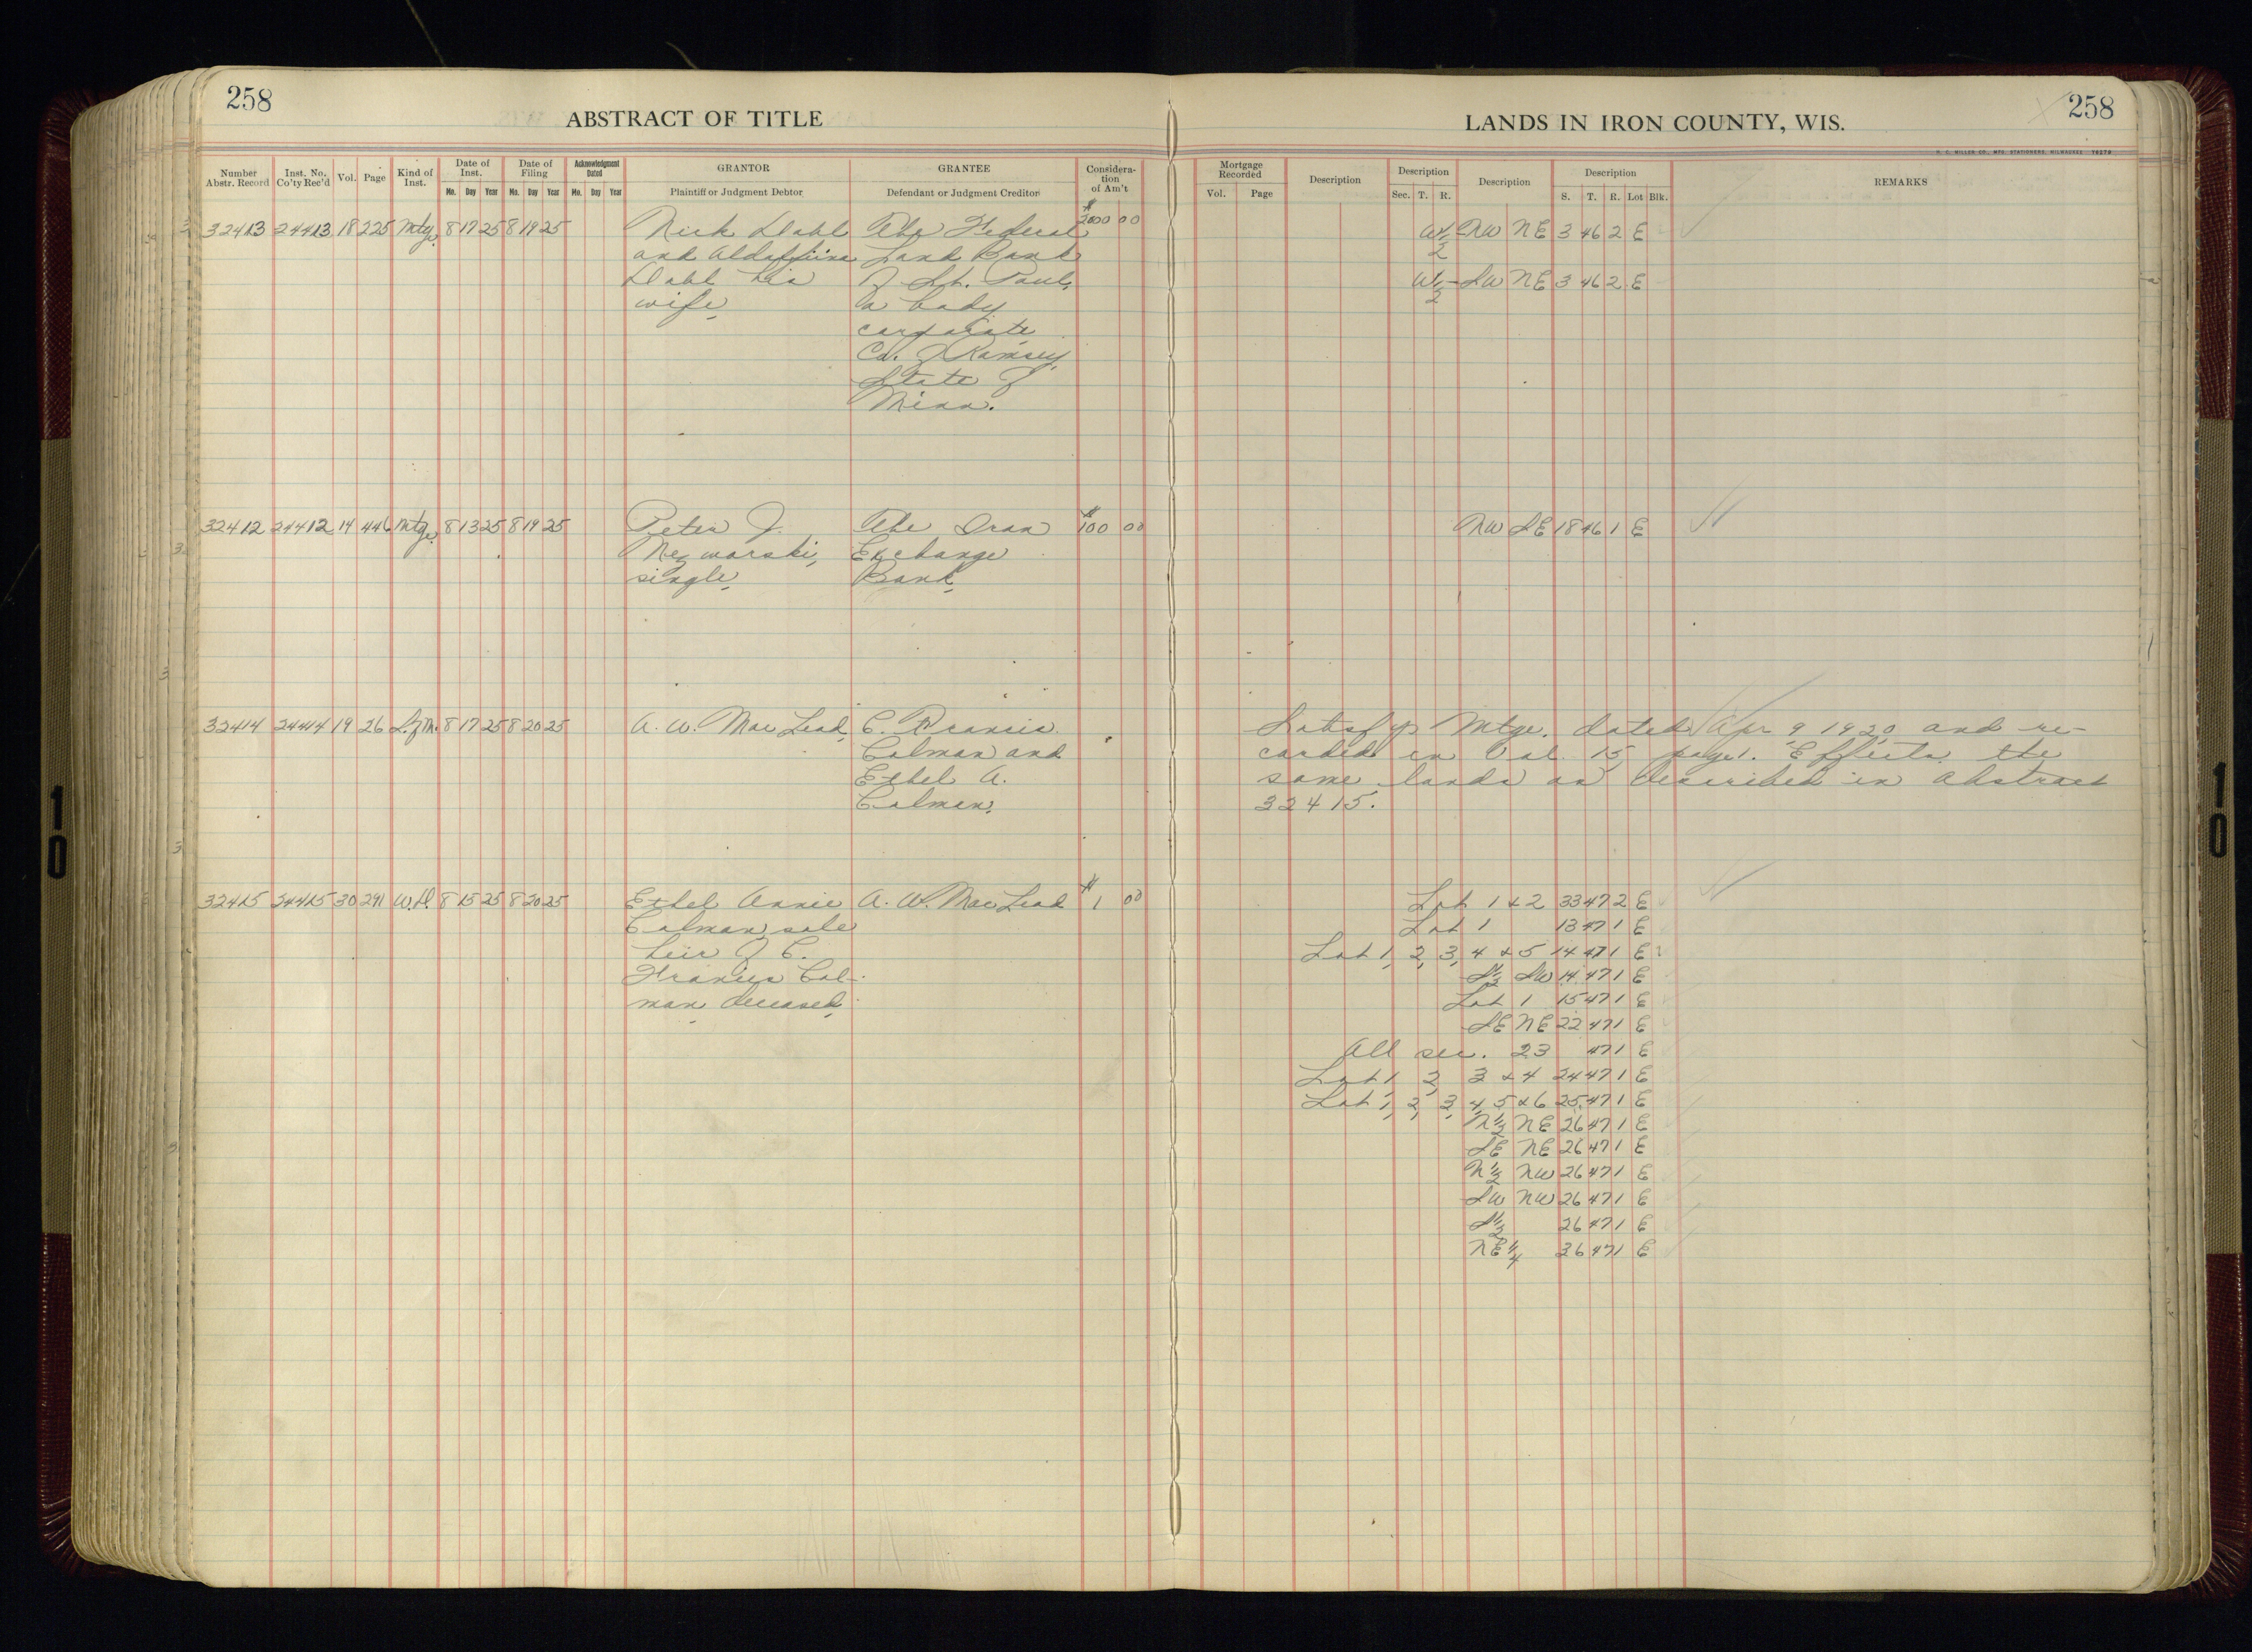 258
258
ABSTRACT OF TITLE
LANDS IN IRON COUNTY, WIS.
H. C. MILLER CO., MFG. STATIONERS, MILWAUKEE
Number Abstr. Record
Inst. No. Co'ty Rec'd
Vol.
Page
Kind of Inst.
Date of Inst.
Mo. Day Year
Date of Filing
Mo. Day Year
Acknowledgment Dated
Mo. Day Year
GRANTOR
Plaintiff or Judgment Debtor
GRANTEE
Defendant or Judgment Creditor
Consideration of Am't
Mortgage Recorded
Vol. Page
Description
Description
Sec. T. R.
Description
Description
S. T. R. Lot Blk.
REMARKS
32413 24413 18 225 Mtg. 8 17 25 8 19 25 Nick Dahl The Federal $2000 00 W½ NW NE 3 46 2 E
and Land Bank
Dahl his of St. Paul, W½ SW NE 3 46 2 E
wife, a body
corporate
Co. of Ramsey,
State of
Minn.
32412 24412 14 446 Mtg. 8 13 25 8 19 25 Peter J. The Iron $100 00 NW SE 18 46 1 E
Nezworski, Exchange
single, Bank,
32414 24414 19 26 S. of M. 8 17 25 8 20 25 A. W. Mac Leod, C. Francis Satisfys Mtge. dated Apr 9 1920 and re-
Colman and corded in Vol. 15, page 1. Effects the
Ethel A. same lands as described in Abstract
Colman, 32415.
32415 24415 30 291 W.D. 8 15 25 8 20 25 Ethel Annie A. W. Mac Leod $1 00 Lot 1 & 2 33 47 2 E
Colman, sole Lot 1 13 47 1 E
heir of C. Lot 1, 2, 3, 4 & 5 14 47 1 E
Francis Col- S½ SW 14 47 1 E
man, deceased, Lot 1 15 47 1 E
SE NE 22 47 1 E
All sec. 23 47 1 E
Lot 1, 2, 3 & 4 24 47 1 E
Lot 1, 2, 3, 4, 5 & 6 25 47 1 E
N½ NE 26 47 1 E
SE NE 26 47 1 E
N½ NW 26 47 1 E
SW NW 26 47 1 E
S½ 26 47 1 E
NE¼ 36 47 1 E
10
10